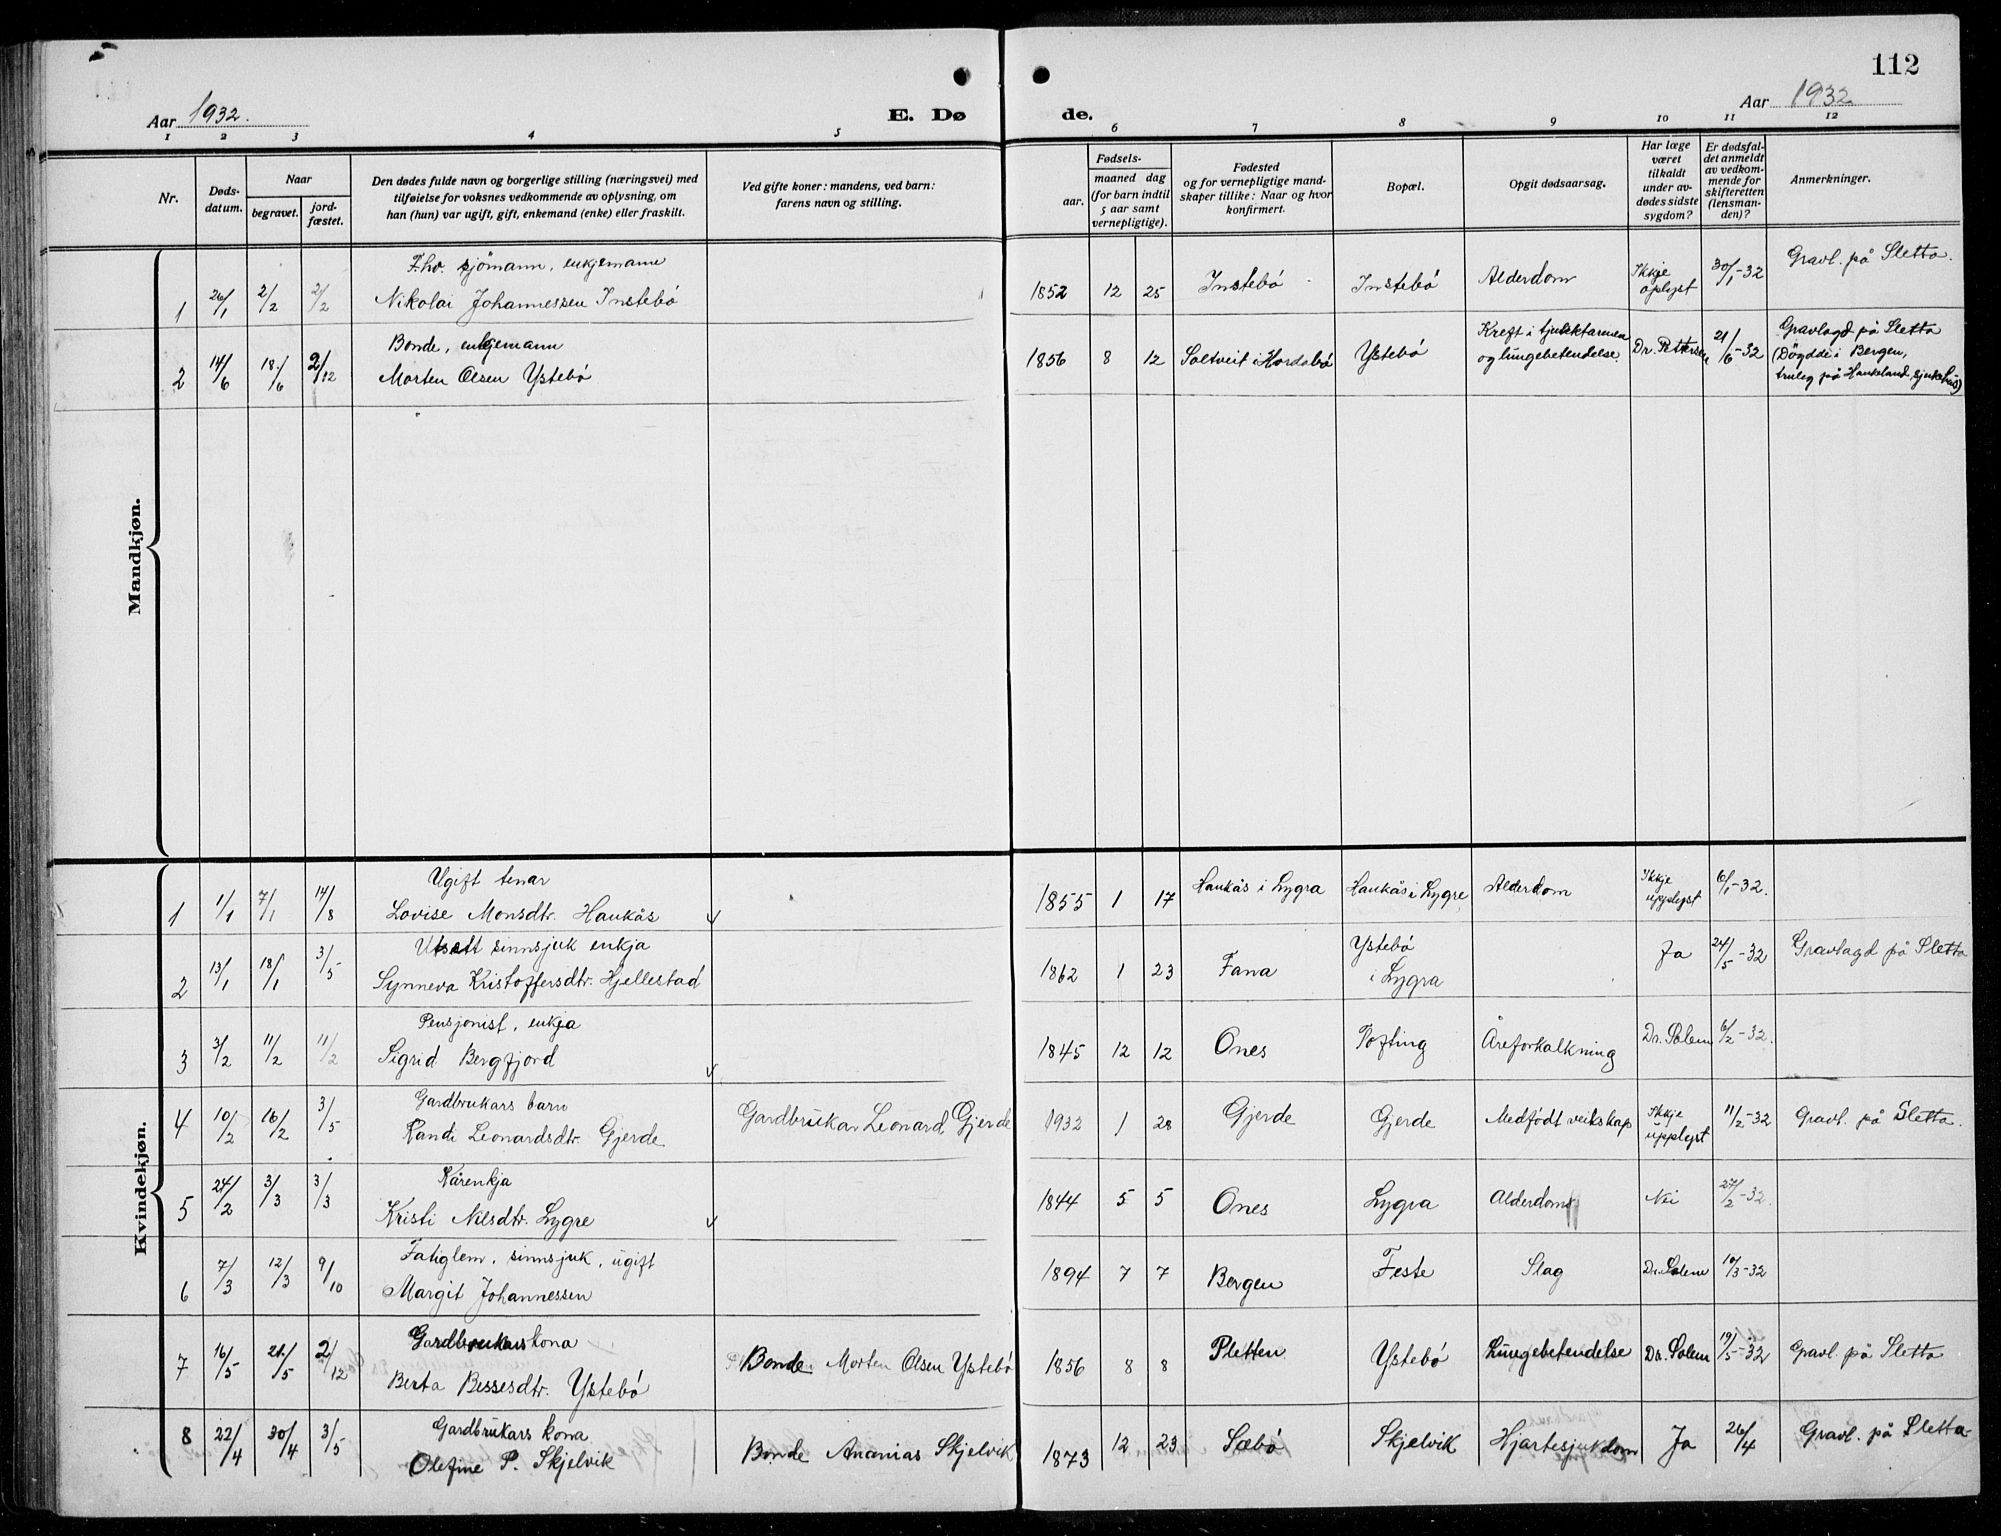 112
Aar 1932.
E. Dø
de.
Aar 1932
1 2 3 4 5 6 7 8 9 10 11 12
Nr.
Døds-
datum.
Naar
begravet.
jord-
fæstet.
Den dødes fulde navn og borgerlige stilling (næringsvei) med
tilføielse for voksnes vedkommende av oplysning, om
han (hun) var ugift, gift, enkemand (enke) eller fraskilt.
Ved gifte koner: mandens, ved barn:
farens navn og stilling.
Fødsels-
aar.
maaned dag
(for barn indtil
5 aar samt
vernepligtige).
Fødested
og for vernepligtige mand-
skaper tillike: Naar og hvor
konfirmert.
Bopæl.
Opgit dødsaarsag.
Har læge
været
tilkaldt
under av-
dødes sidste
sygdom?
Er dødsfal-
det anmeldt
av vedkom-
mende for
skifteretten
(lensman-
den)?
Anmerkninger.
Mandkjøn.
F.hv. sjömann, enkjemann
1 26/1 2/2 2/2 Nikolai Johannessen Instebö 1852 12 25 Instebö Instebö Alderdom Ikkje oplyst 30/1-32 Gravl. på Sletta.
Bonde, enkjemann
2 14/6 18/6 2/12 Morten Olsen Ystebö 1856 8 12 Soltveit i Hordabö Ystebö Kreft i tjukktarmen
og lungebetendelse. Dr. Pettersen 21/6-32 Gravlagd på Sletta
(Döydde i Bergen,
truleg på Haukeland sjukehus)
Kvindekjøn.
Ugift tenar
1 1/1 7/1 14/8 Lovise Monsdtr. Haukås 1855 1 17 Haukås i Lygra Haukås i Lygre Alderdom Ikkje upplyst 6/1-32.
Utsett sinnsjuk enkja
2 13/1 18/1 3/5 Synneva Kristoffersdtr. Hjellestad 1862 1 23 Fana Ystebö
i Lygra Ja 24/5-32 Gravlagd på Sletta
Pensjonist, enkja
3 3/2 11/2 11/2 Sigrid Bergfjord 1845 12 12 Ones Tofting Åreforkalkning Dr. Solem 6/2-32.
Gardbrukars barn
4 10/2 16/2 3/5 Randi Leonardsdtr Gjerde Gardbrukar Leonard Gjerde 1932 1 28 Gjerde Gjerde Medfödt veikskap Ikkje upplyst 11/2-32 Gravl. på Sletta.
Kårenkja
5 24/2 3/3 3/3 Kristi Nilsdtr. Lygre 1844 5 5 Ones Lygra Alderdom Nei 27/2-32.
Fatiglem, sinnsjuk, ugift
6 7/3 12/3 9/10 Margit Johannessen 1894 7 7 Bergen Feste Slag Dr. Solem 10/3-32
Gardbrukars kona
7 16/5 21/5 2/12 Berta Bessesdtr. Ystebö Bonde Morten Olsen Ystebö 1856 8 8 Sletten Ystebö Lungebetendelse Dr. Solem 19/5-32 Gravl. på Sletta
Gardbrukars kona
8 22/4 30/4 3/5 Olefine P. Skjelvik Bonde Ananias Skjelvik 1873 12 23 Sæbö Skjelvik Hjartesjukdom Ja 26/4 Gravl. på Sletta